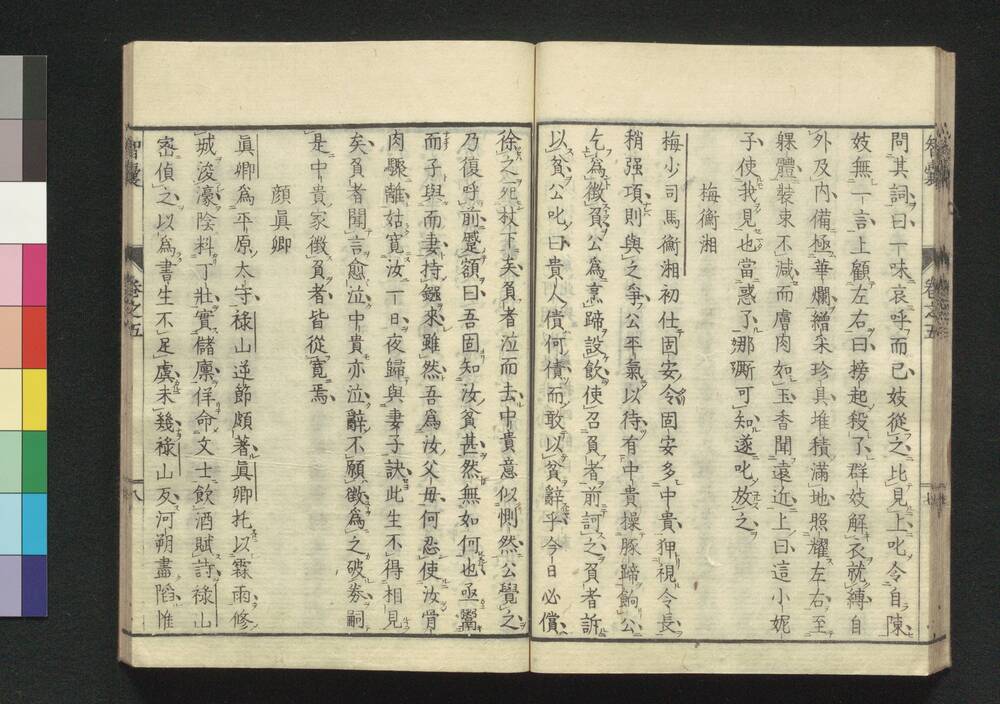 問其詞曰一味哀呼而已妓從之比見上叱令自陳
妓無一言上顧左右曰搒起殺了群妓解衣就縛自
外及內備極華爛繒采珍具堆積滿地照耀左右至
躶體裝束不減而膚肉如玉香聞遠近上曰這小妮
子使我見也當惑了那厮可知遂叱放之
梅衡湘
梅少司馬衡湘初仕固安令固安多中貴狎視令長
稍强項則與之爭公平氣以待有中貴操豚蹄餉公
乞爲徵負公爲烹蹄設飮使召負者前訶之負者訴
以貧公叱曰貴人債何債而敢以貧辭乎今日必償
徐之死杖下矣負者泣而去中貴意似惻然公覺之
乃復呼前蹙額曰吾固知汝貧甚然無如何也亟鬻
而子與而妻持鏹來雖然吾爲汝父母何忍使汝骨
肉驟離姑寬汝一日夜歸與妻子訣此生不得相見
矣負者聞言愈泣中貴亦泣辭不願徵爲之破券嗣
是中貴家徵負者皆從寬焉
顏眞卿
眞卿爲平原太守祿山逆節頗著眞卿托以霖雨修
城浚濠陰料丁壯實儲廩佯命文士飮酒賦詩祿山
密偵之以爲書生不足虞未幾祿山反河朔盡陷惟
智囊 卷之五
卷之五 八